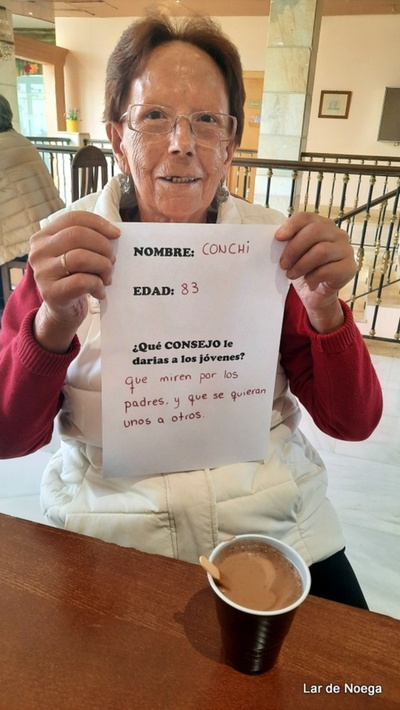 NOMBRE: CONCHi
EDAD: 83
¿Qué CONSEJO le
darías a los jóvenes?
que miren por los
padres, y que se quieran
unos a otros.
Lar de Noega